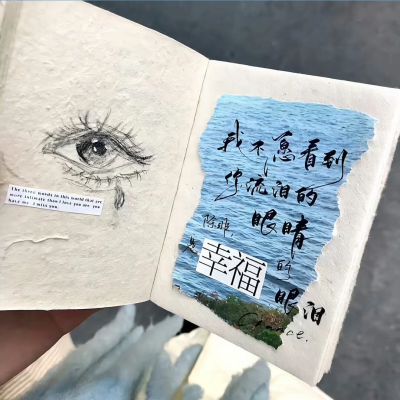 The three words in this world that are
more intimate than i love you are you
have me i miss you
我不愿看到
你流泪的
眼睛
除非
是
幸福
的
眼泪